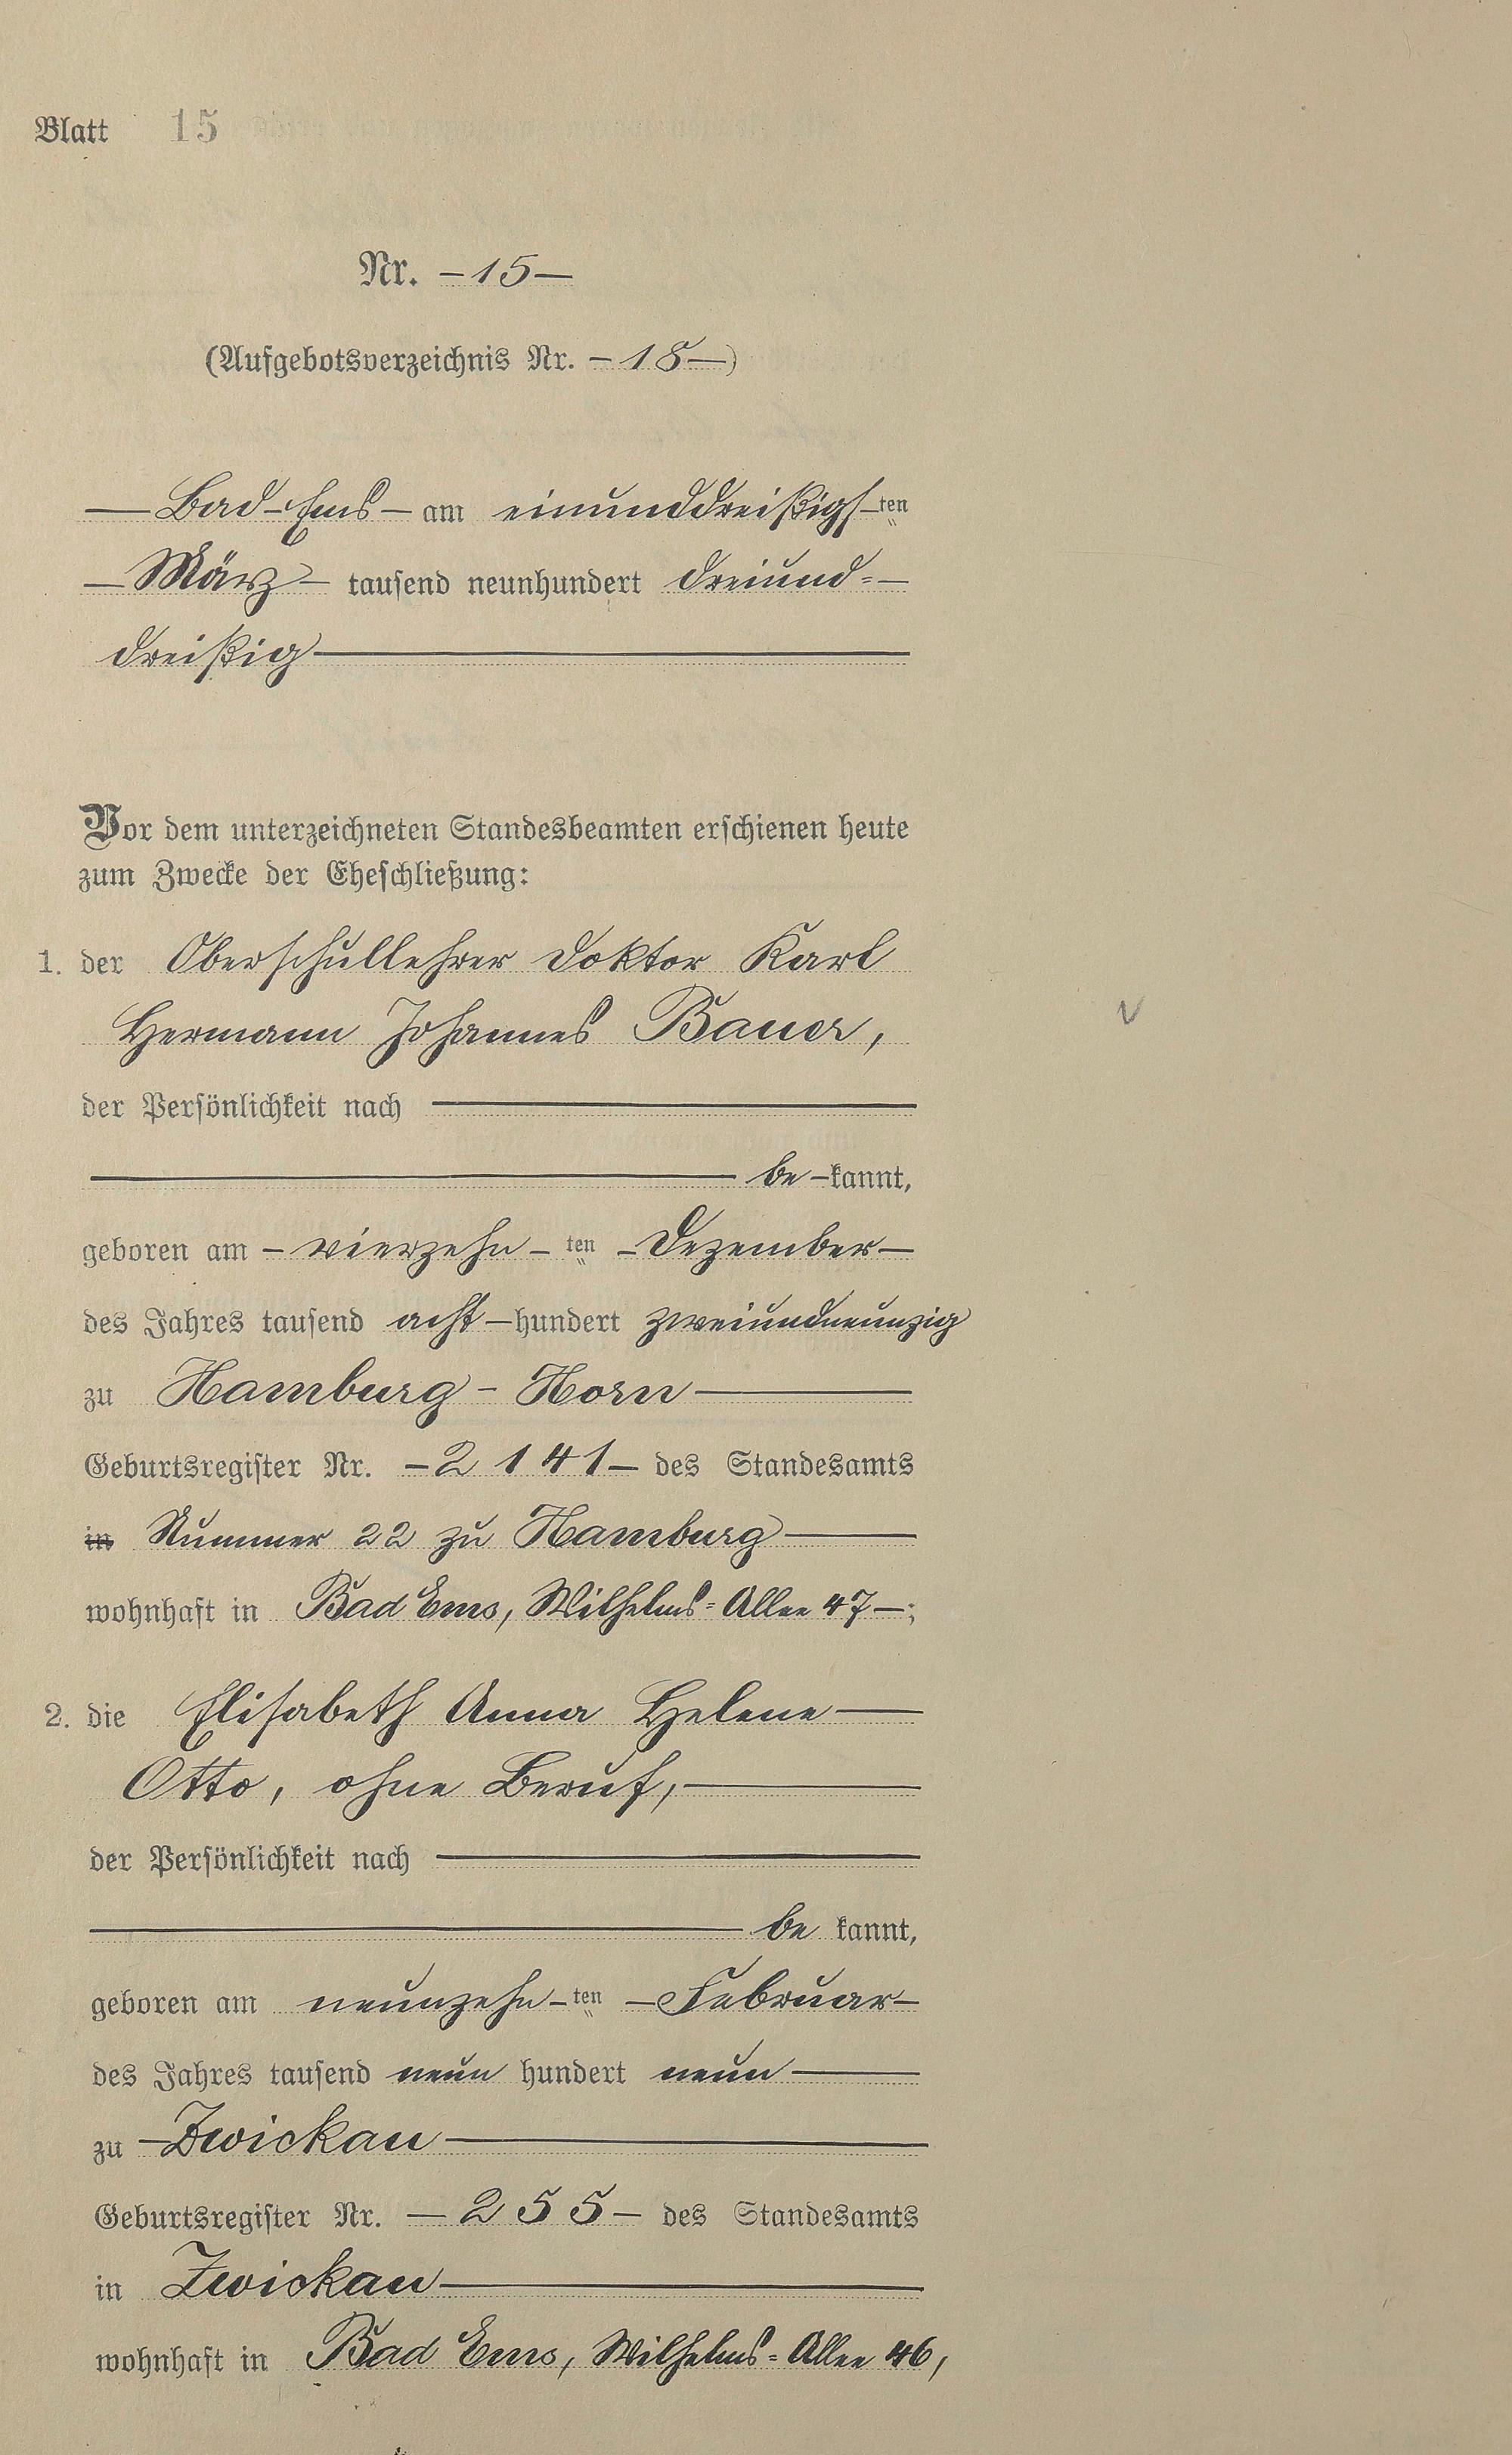 Blatt 15
Nr. – 15 –
(Aufgebotsverzeichnis Nr. – 18 –)
— Bad-Ems — am einunddreißigs-ten
— März — tausend neunhundert dreiund=—
dreißig —
Vor dem unterzeichneten Standesbeamten erschienen heute
zum Zwecke der Eheschließung:
1. der Oberschullehrer Doktor Karl
Hermann Johannes Bauer,
der Persönlichkeit nach —
— be – kannt,
geboren am – vierzehn – ten – Dezember –
des Jahres tausend acht – hundert zweiundneunzig
zu Hamburg - Horn —
Geburtsregister Nr. – 2 141 – des Standesamts
in Nummer 22 zu Hamburg —
wohnhaft in Bad Ems, Wilhelms=Allee 47 –;
2. die Elisabeth Anna Helene —
Otto, ohne Beruf, —
der Persönlichkeit nach —
— be kannt,
geboren am neunzehn – ten – Februar –
des Jahres tausend neun hundert neun —
zu – Zwickau —
Geburtsregister Nr. – 255 – des Standesamts
in Zwickau —
wohnhaft in Bad Ems, Wilhelms=Allee 46,